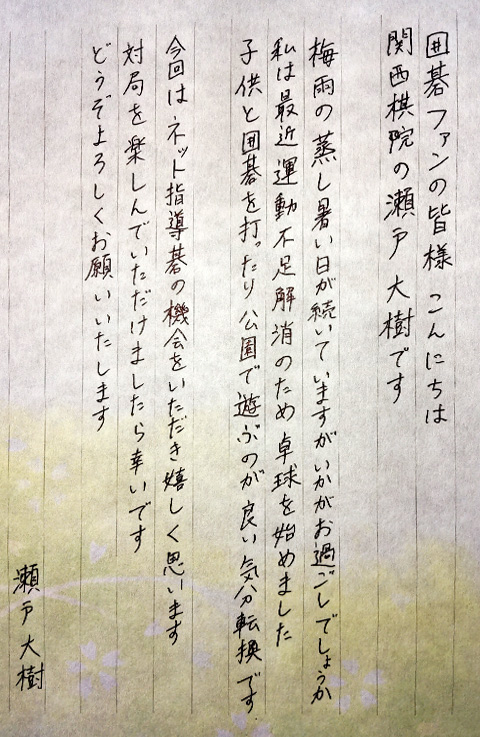 囲碁ファンの皆様 こんにちは
関西棋院の瀬戸大樹です
梅雨の蒸し暑い日が続いていますがいかがお過ごしでしょうか
私は最近運動不足解消のため卓球を始めました
子供と囲碁を打ったり公園で遊ぶのが良い気分転換です.
今回はネット指導碁の機会をいただき嬉しく思います
対局を楽しんでいただけましたら幸いです
どうぞよろしくお願いいたします
瀬戸大樹